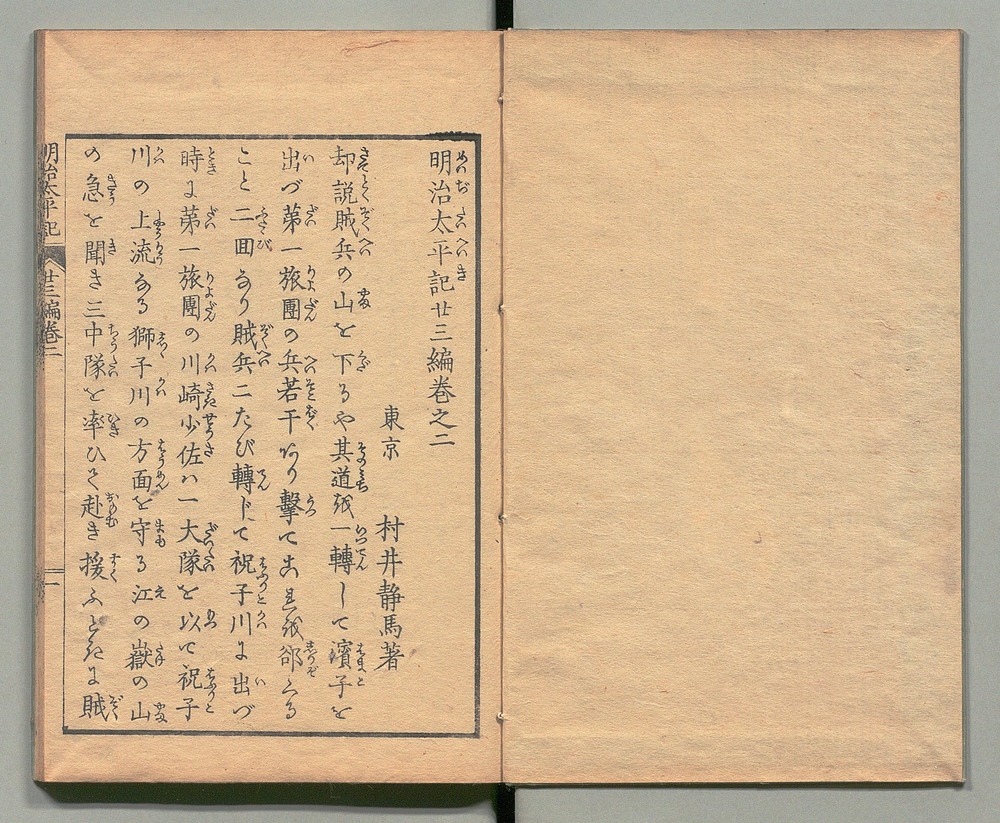 明治太平記廿三編巻之二
東京 村井静馬著
却説賊兵の山を下るや其道を一轉して濱子を
出づ第一旅團の兵若干あり撃て之を郤くる
こと二囬なり賊兵二たび轉じて祝子川に出づ
時に第一旅團の川崎少佐ハ一大隊を以て祝子
川の上流なる獅子川の方面を守る江の嶽の山
の急を聞き三中隊を率ひて赴き援ふときに賊
明治太平記 廿三編巻二 一